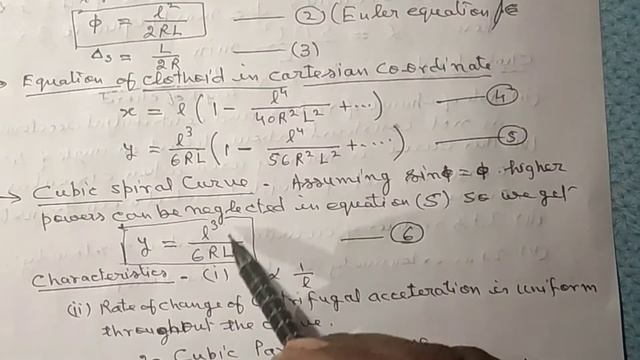 ϕ = l²/2RL —— ② (Euler equation
Δs = L/2R —— (3)
Equation of clothoid in cartesian co-ordinate
x = l(1 - l⁴/40R²L² + ...) —— ④
y = l³/6RL (1 - l⁴/56R²L² + ....) —— ⑤
→ Cubic spiral Curve - Assuming sinϕ = ϕ . higher
powers can be neglected in equation (5) so we get
y = l³/6RL —— ⑥
Characteristics - (i) ∝ 1/l
(ii) Rate of change of centrifugal acceteration is uniform
throughout the
Cubic